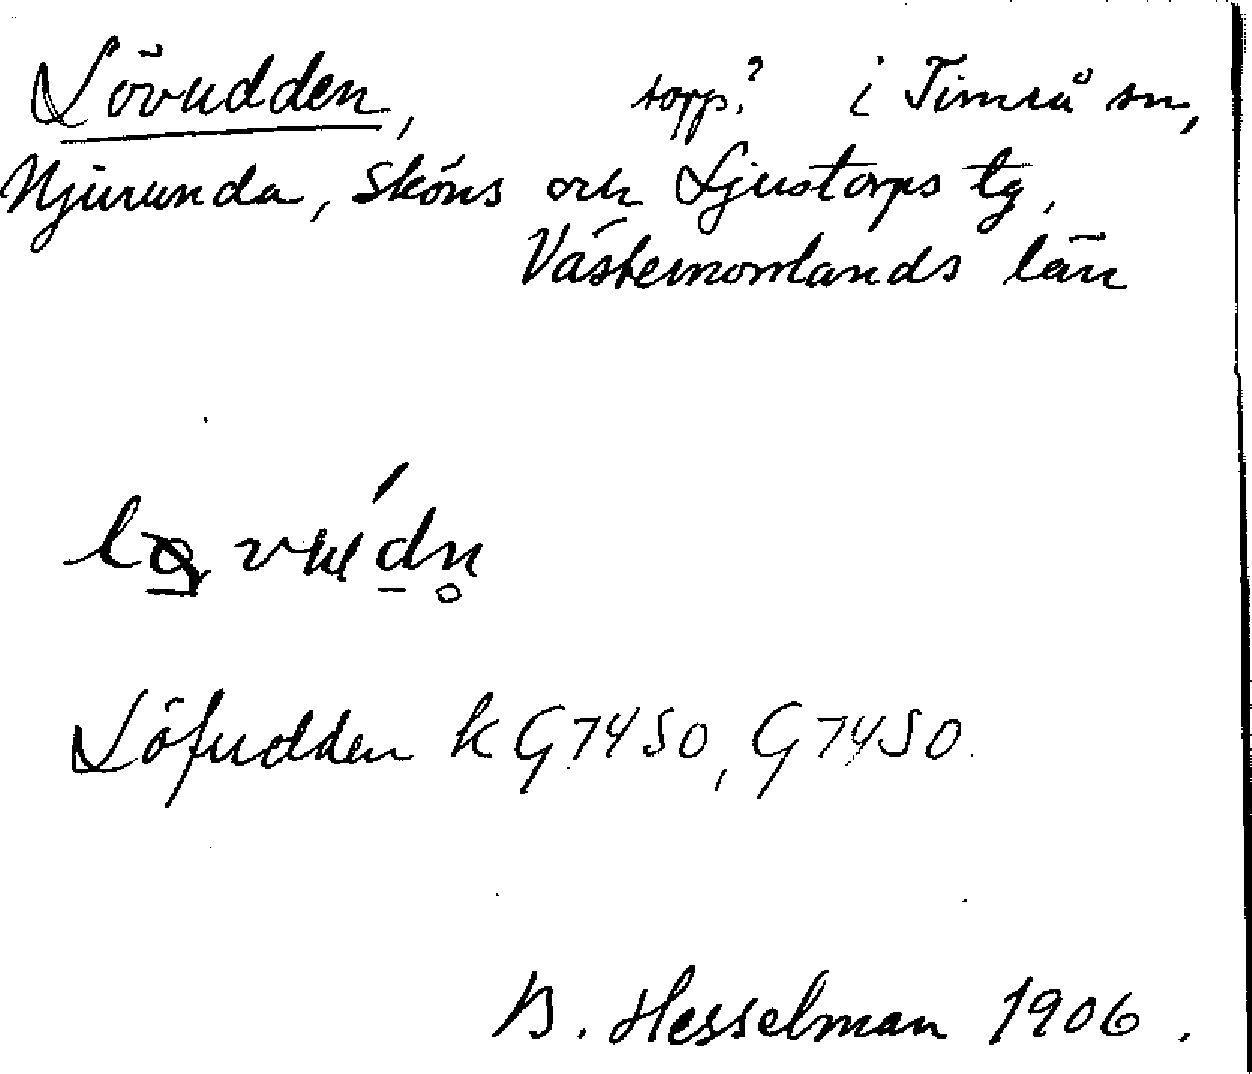 Lövudden, torp? i Timrå sn,
Njurunda, Sköns och Ljustorps tg,
Västernorrlands län
Löfudden k G7450, G7450.
B. Hesselman 1906.